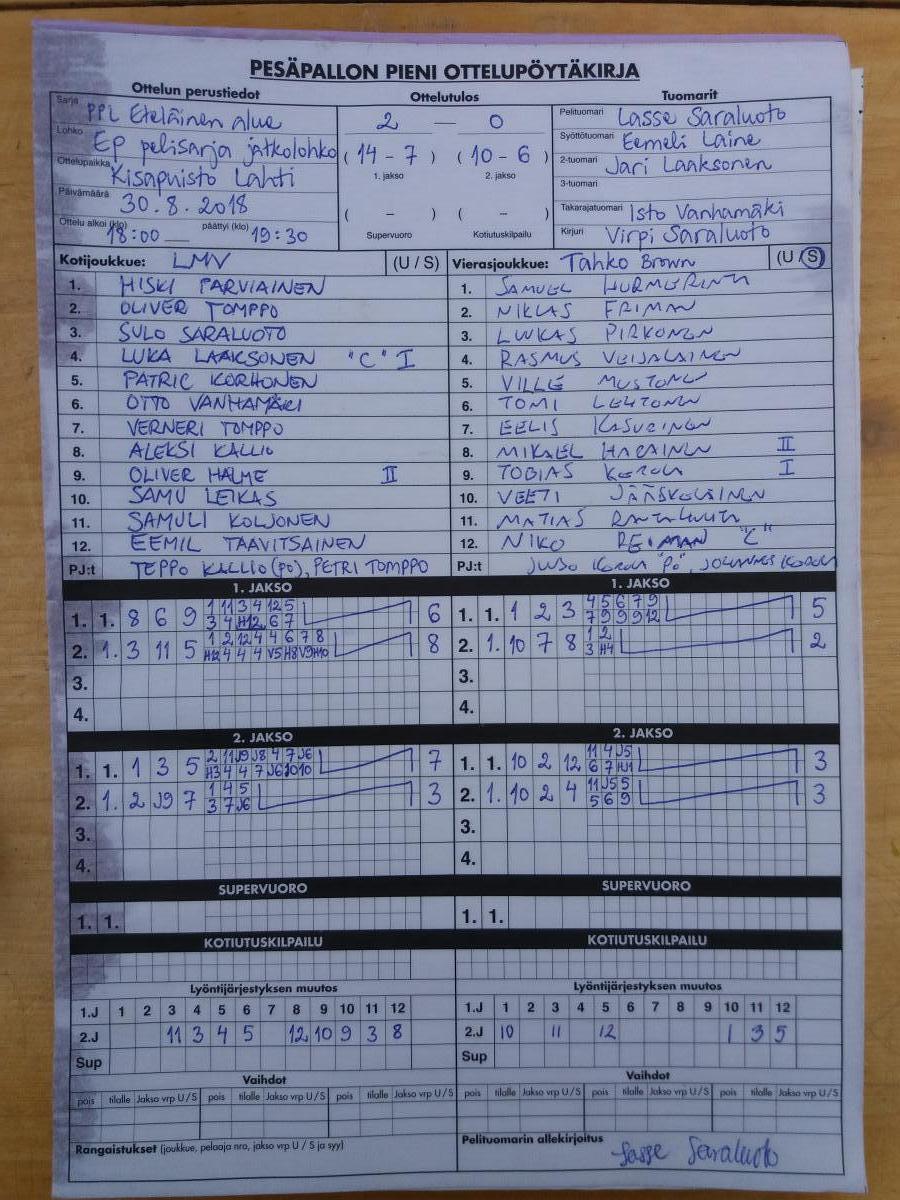 PESÄPALLON PIENI OTTELUPÖYTÄKIRJA
Ottelun perustiedot Ottelutulos Tuomarit
Sarja PPL Eteläinen alue
Lohko EP pelisarja jatkolohko
Ottelupaikka Kisapuisto Lahti
Päivämäärä 30.8.2018
Ottelu alkoi (klo) 18:00 päättyi (klo) 19:30
2 — 0
( 14 - 7 ) ( 10 - 6 )
1. jakso 2. jakso
( - ) ( - )
Supervuoro Kotiutuskilpailu
Pelituomari Lasse Saraluoto
Syöttötuomari Eemeli Laine
2-tuomari Jari Laaksonen
3-tuomari
Takarajatuomari Isto Vanhamäki
Kirjuri Virpi Saraluoto
Kotijoukkue: LMV (U / S)
1. HISKI PARVIAINEN
2. OLIVER TOMPPO
3. SULO SARALUOTO
4. LUKA LAAKSONEN "C" I
5. PATRIC KORHONEN
6. OTTO VANHAMÄKI
7. VERNERI TOMPPO
8. ALEKSI KALLIO
9. OLIVER HALME II
10. SAMU LEIKAS
11. SAMULI KOLJONEN
12. EEMIL TAAVITSAINEN
PJ:t TEPPO KALLIO (PO), PETRI TOMPPO
Vierasjoukkue: Tahko Brown (U / S)
1. SAMUEL HURMERINTA
2. NIKLAS FRIMAN
3. LUKAS PIRKONEN
4. RASMUS VEIJALAINEN
5. VILLE MUSTONEN
6. TOMI LEHTONEN
7. EELIS KASURINEN
8. MIKAEL HARAINEN II
9. TOBIAS KOROMA I
10. VEETI JÄÄSKELÄINEN
11. MATIAS
12. NIKO REIMAN "C"
PJ:t JUSO "PO", JOHANNES
1. JAKSO
1. 1. 8 6 9 1 11 3 4 12 5 6
3 4 H12 6 7
2. 1. 3 11 5 1 2 12 4 4 6 7 8 8
H12 4 4 4 V5 H8 V9 H10
3.
4.
1. JAKSO
1. 1. 1 2 3 4 5 6 7 9 5
7 9 9 9 12
2. 1. 10 7 8 1 2 2
3 H4
3.
4.
2. JAKSO
1. 1. 1 3 5 2 11 J9 J8 4 7 J6 7
H3 4 4 7 J6 10 10
2. 1. 2 J9 7 1 4 5 3
3 7 J6
3.
4.
2. JAKSO
1. 1. 10 2 12 11 4 J5 3
6 7 H11
2. 1. 10 2 4 11 J5 5 3
5 6 9
3.
4.
SUPERVUORO SUPERVUORO
1. 1. 1. 1.
KOTIUTUSKILPAILU KOTIUTUSKILPAILU
Lyöntijärjestyksen muutos
1.J 1 2 3 4 5 6 7 8 9 10 11 12
2.J 11 3 4 5 12 10 9 3 8
Sup
Lyöntijärjestyksen muutos
1.J 1 2 3 4 5 6 7 8 9 10 11 12
2.J 10 11 12 1 3 5
Sup
Vaihdot Vaihdot
pois tilalle Jakso vrp U / S pois tilalle Jakso vrp U / S pois tilalle Jakso vrp U / S
pois tilalle Jakso vrp U / S pois tilalle Jakso vrp U / S pois tilalle Jakso vrp U / S
Rangaistukset (joukkue, pelaaja nro, jakso vrp U / S ja syy)
Pelituomarin allekirjoitus
Lasse Saraluoto